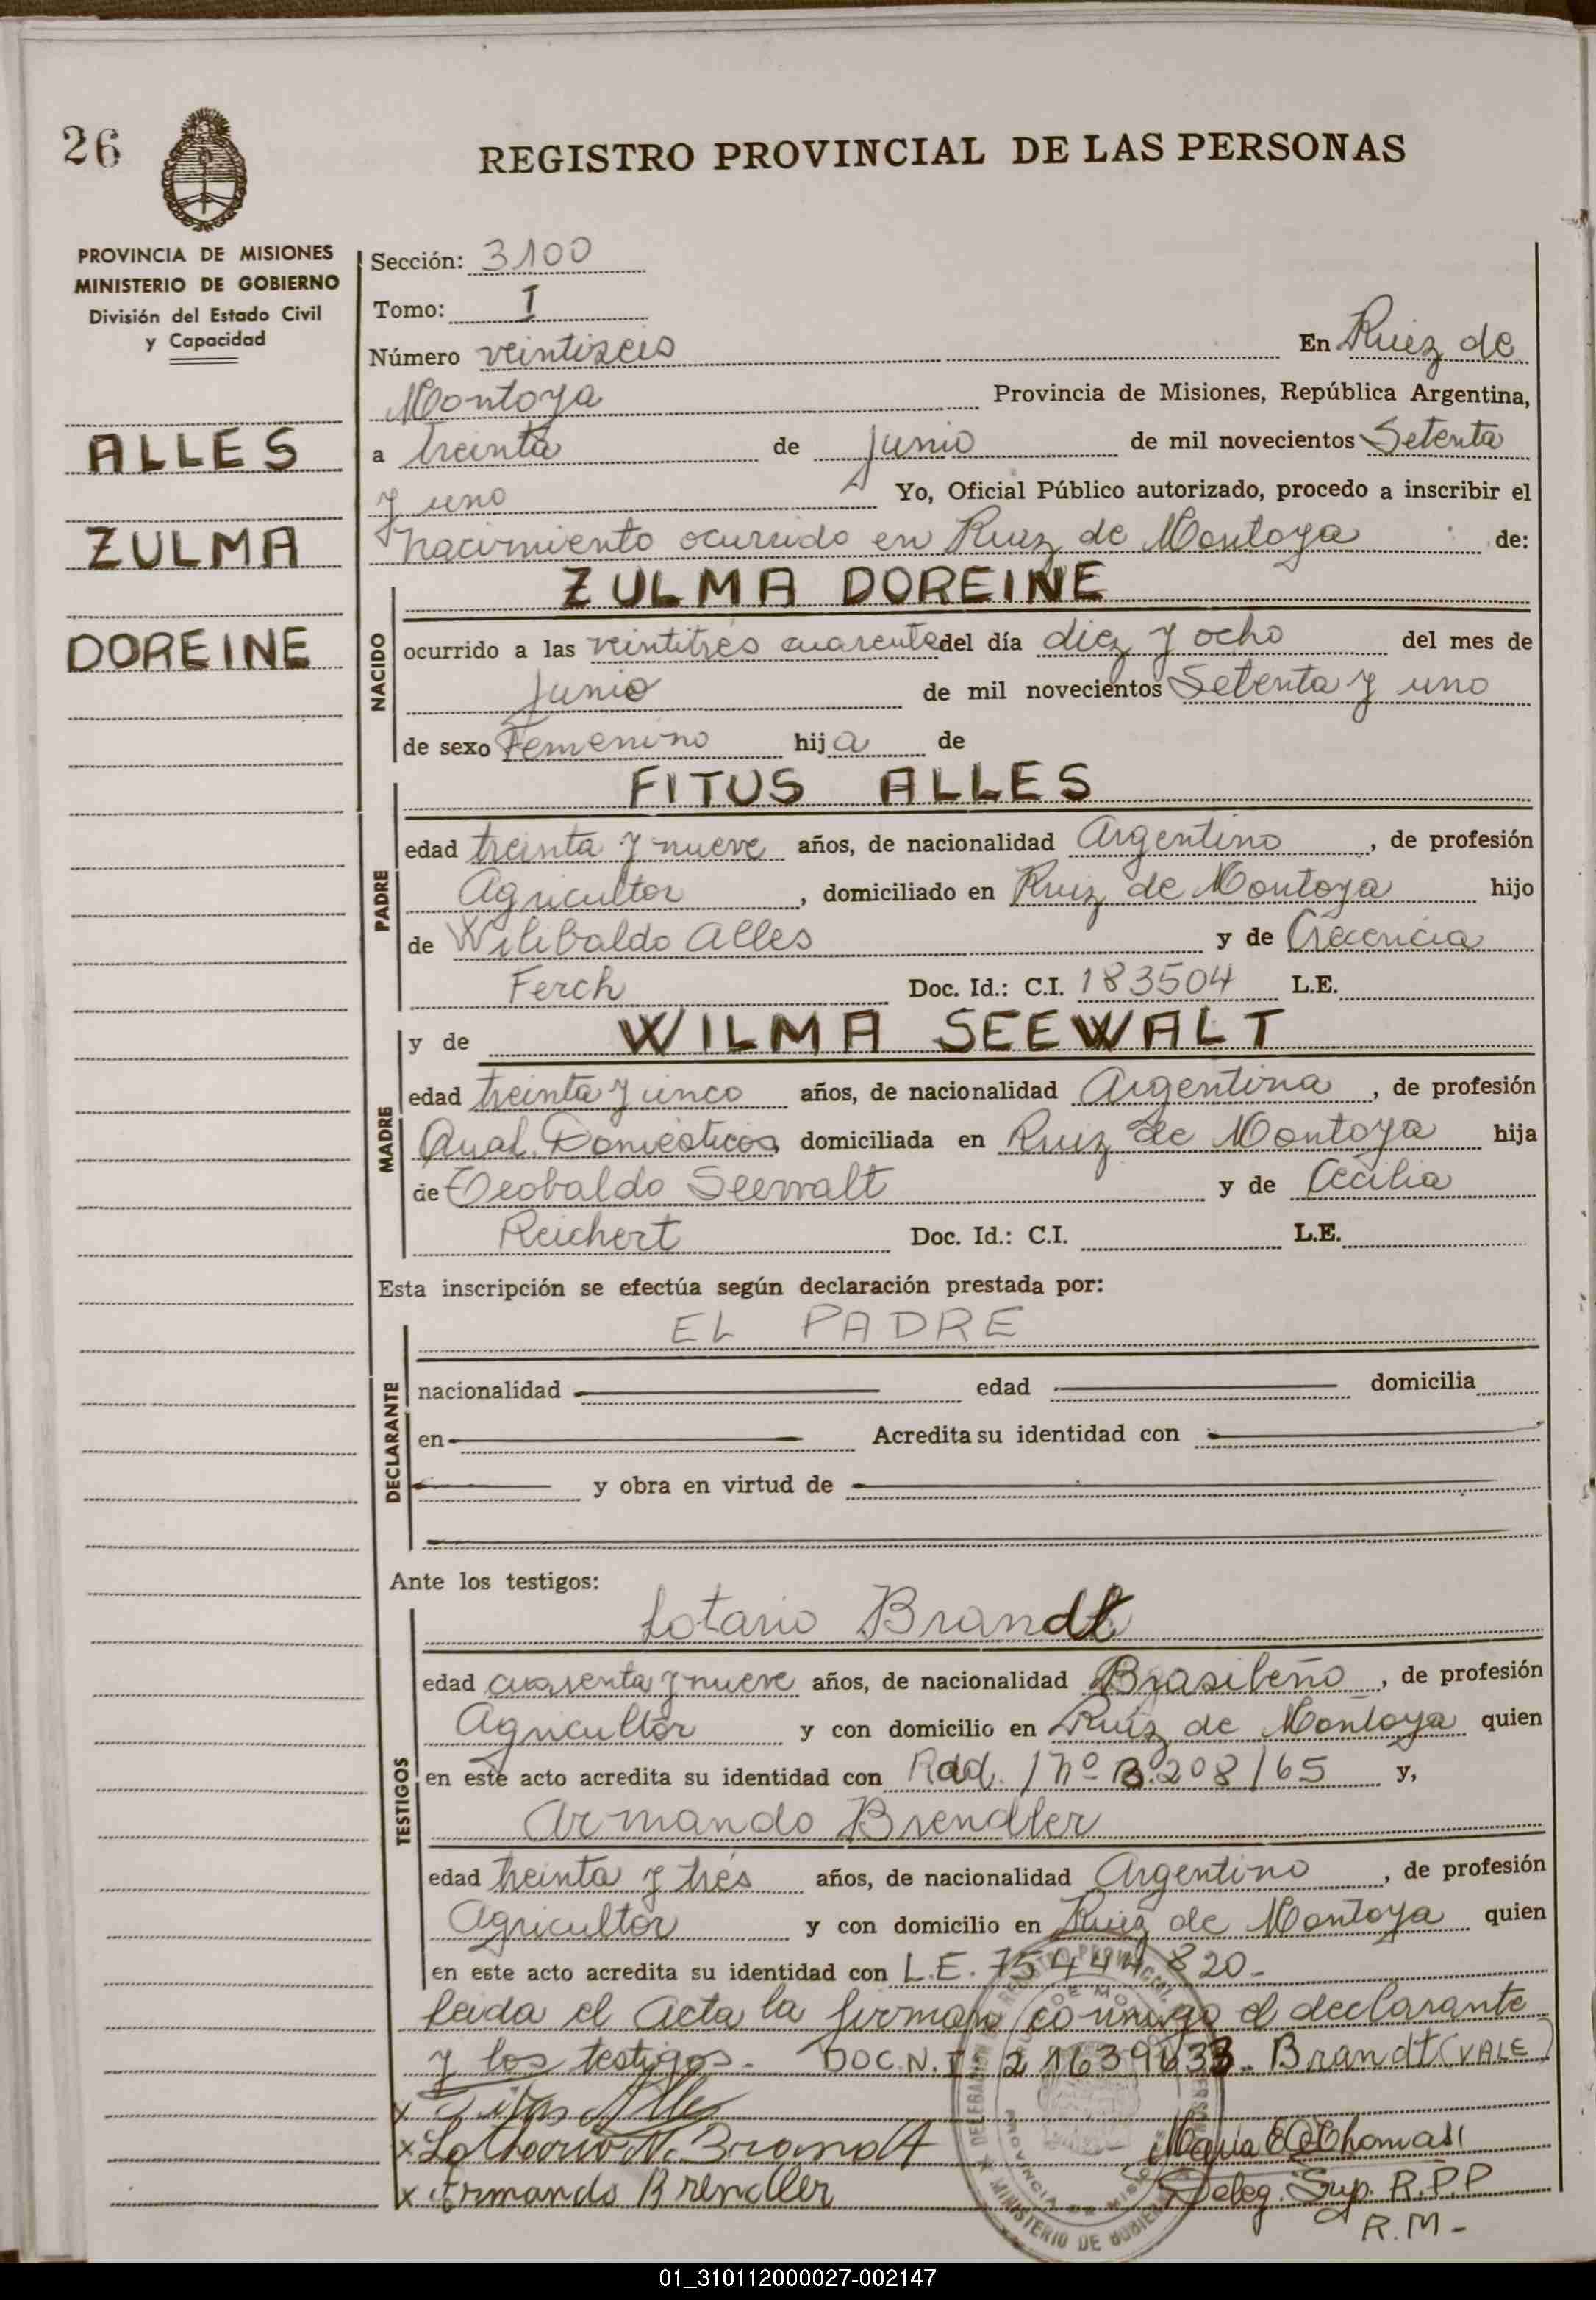 26
REGISTRO PROVINCIAL DE LAS PERSONAS
PROVINCIA DE MISIONES
MINISTERIO DE GOBIERNO
División del Estado Civil
y Capacidad
ALLES
ZULMA
DOREINE
Sección: 3100
Tomo: I
Número veintiseis En Ruiz de
Montoya Provincia de Misiones, República Argentina,
a treinta de junio de mil novecientos Setenta
y uno Yo, Oficial Público autorizado, procedo a inscribir el
nacimiento ocurrido en Ruiz de Montoya de:
NACIDO
ZULMA DOREINE
ocurrido a las veintitres cuarenta del día diez y ocho del mes de
junio de mil novecientos Setenta y uno
de sexo Femenino hija de
PADRE
FITUS ALLES
edad treinta y nueve años, de nacionalidad Argentino, de profesión
Agricultor, domiciliado en Ruiz de Montoya hijo
de Wilibaldo Alles y de Crecencia
Ferch Doc. Id.: C.I. 183504 L.E.
MADRE
y de WILMA SEEWALT
edad treinta y cinco años, de nacionalidad Argentina, de profesión
Domésticos domiciliada en Ruiz de Montoya hija
de Teobaldo Seewalt y de Cecilia
Reichert Doc. Id.: C.I. L.E.
Esta inscripción se efectúa según declaración prestada por:
DECLARANTE
EL PADRE
nacionalidad edad domicilia
en Acredita su identidad con
y obra en virtud de
Ante los testigos:
TESTIGOS
Lotario Brandt
edad cuarenta y nueve años, de nacionalidad Brasileño, de profesión
Agricultor y con domicilio en Ruiz de Montoya quien
en este acto acredita su identidad con Rdd. / Nº B.208/65 y,
Armando Brendler
edad treinta y tres años, de nacionalidad Argentino, de profesión
Agricultor y con domicilio en Ruiz de Montoya quien
en este acto acredita su identidad con L.E.
leida el Acta la firman conmigo el declarante
y los testigos. DOC.N.I. Brandt (VALE)
x Titus Alles
x Brandt
x Armando Brendler
Maria Thomas
Deleg. Sup. R.P.P
R.M-
MINISTERIO DE GOBIERNO
PROVINCIA DE MISIONES
01_310112000027-002147